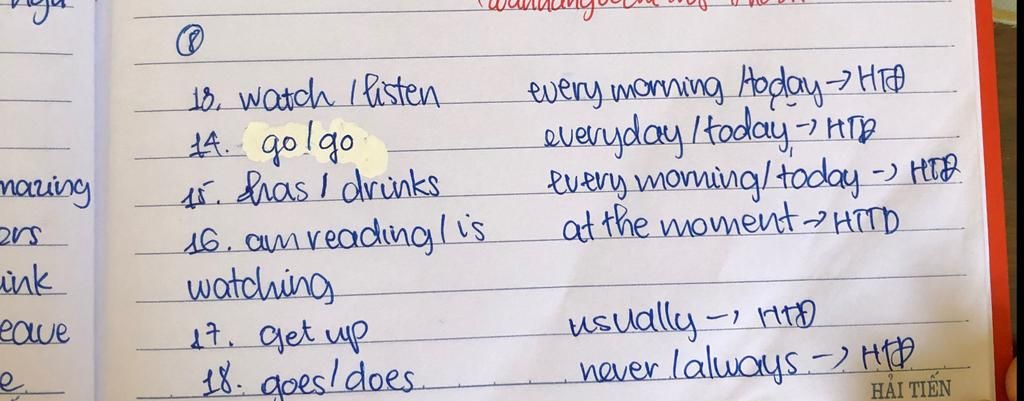 ⑧
13. watch / listen every morning / today → HTĐ
14. go / go everyday / today → HTĐ
15. has / drinks every morning / today → HTĐ
16. am reading / is at the moment → HTTD
watching
17. get up usually → HTĐ
18. goes / does never / always → HTĐ
HẢI TIẾN
mazing
ers
ink
eave
e